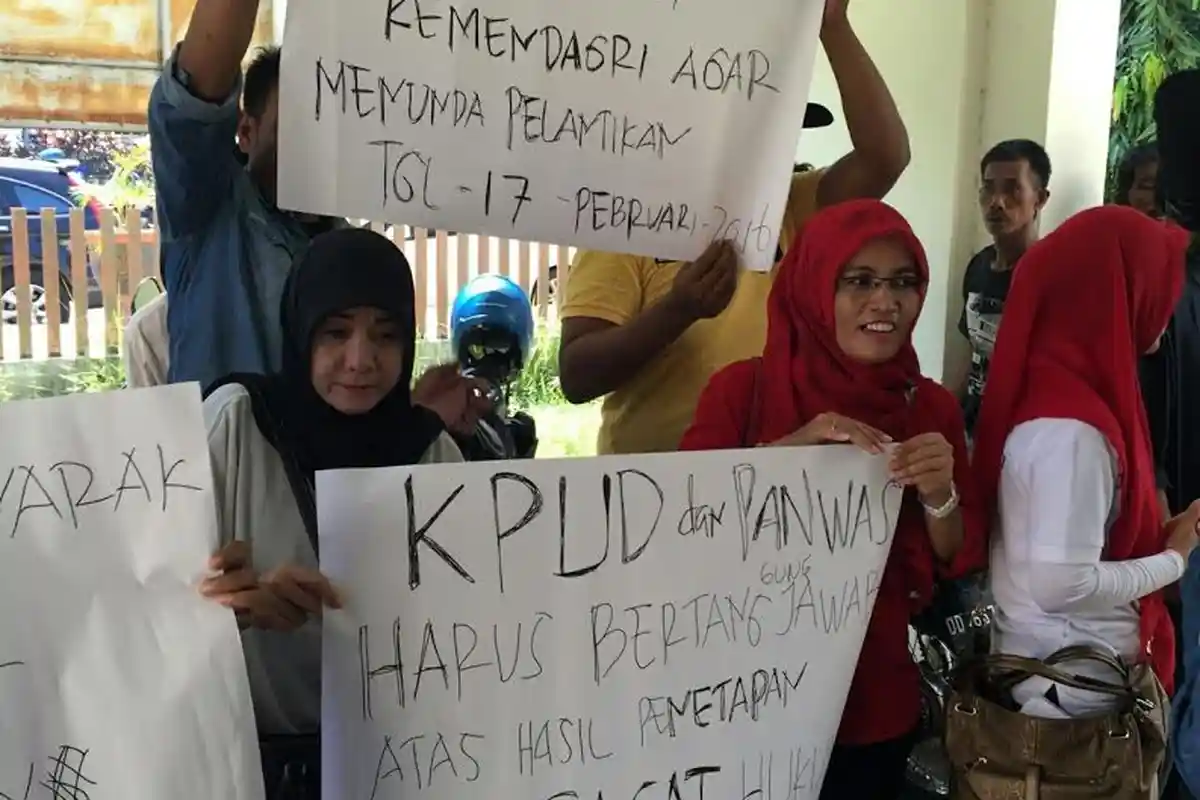 KEMENDAGRI AGAR
MENUNDA PELANTIKAN
TGL - 17 - PEBRUARI - 2016
YARAK
KPUD dan PANWAS
HARUS BERTANGGUNG JAWAB
ATAS HASIL PENETAPAN
CACAT HUKU
DD